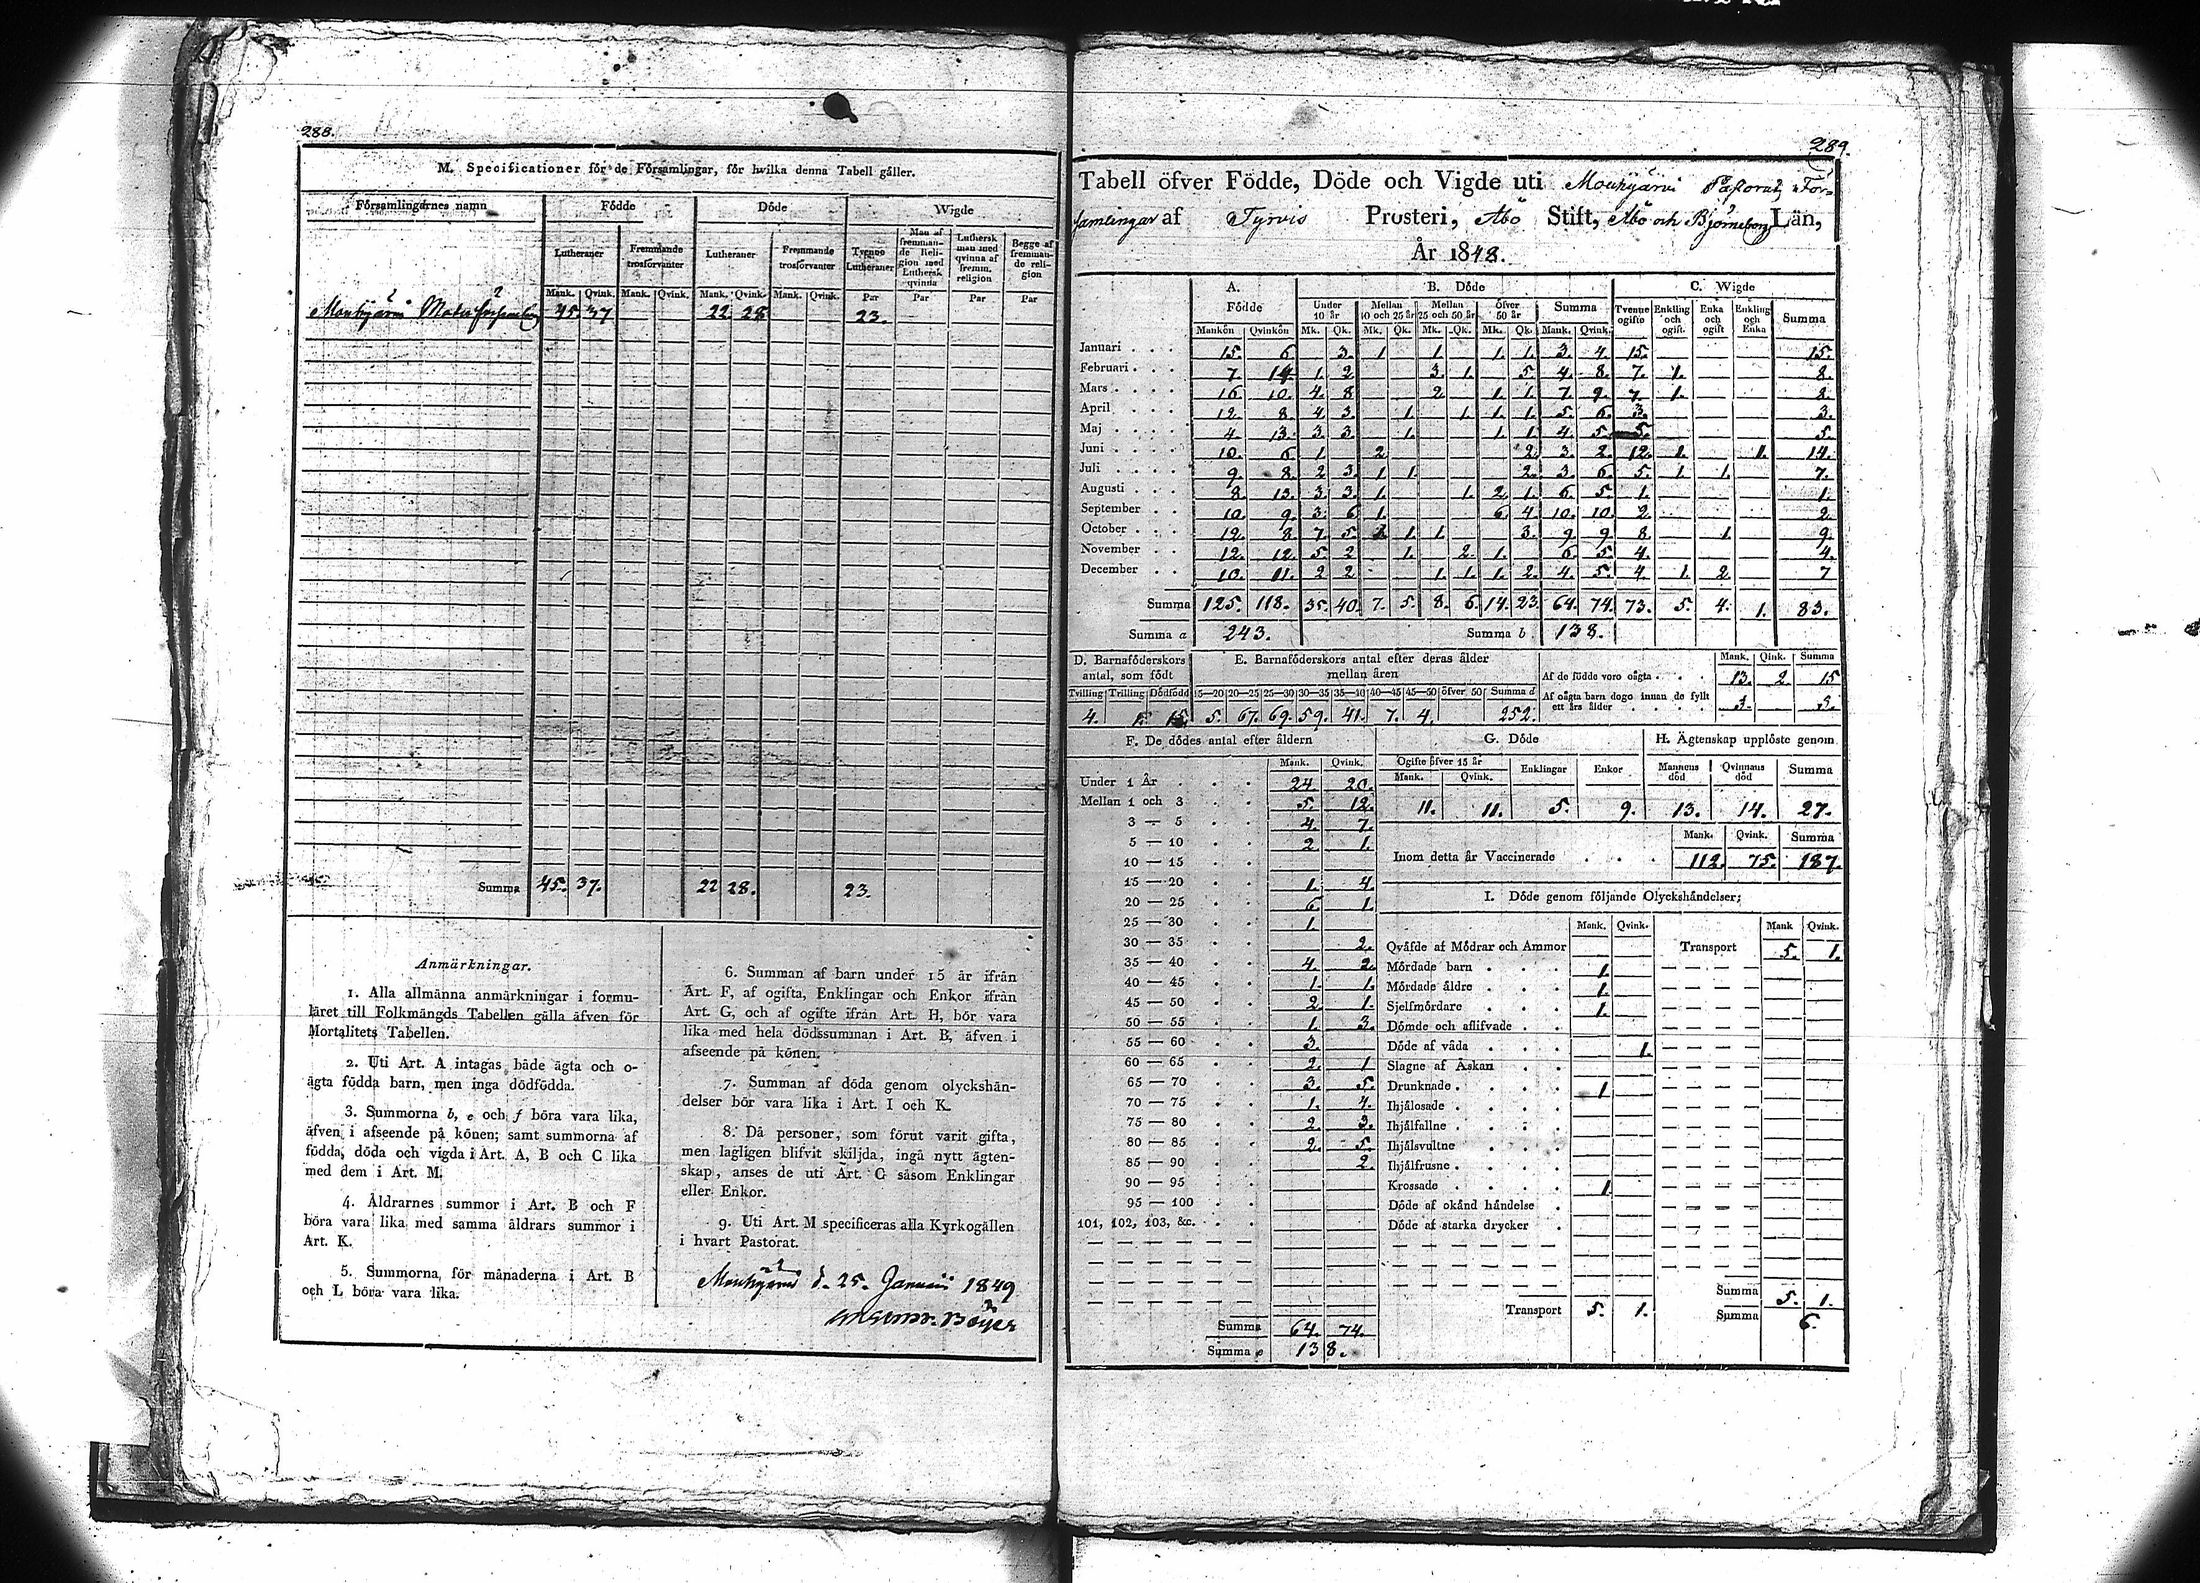 288.
M. Specificationer för de Församlingar, för hvilka denna Tabell gäller.
Församlingarnes namn Födde Döde Wigde
Lutheraner Fremmande trosförvanter Lutheraner Fremmande trosförvanter Tvenne Lutheraner Man af fremmande Religion med Luthersk qvinna Luthersk man med qvinna af fremm. religion Begge af fremmande religion
Mank. Qvink. Mank. Qvink. Mank. Qvink. Mank. Qvink. Par Par Par Par
Mouhijärvi Moder 45. 37 22. 28 23.
Summa 45. 37. 22 28. 23.
Anmärkningar.
1. Alla allmänna anmärkningar i formu-
läret till Folkmängds Tabellen gälla äfven för
Mortalitets Tabellen.
2. Uti Art. A intagas både ägta och o-
ägta födda barn, men inga dödfödda.
3. Summorna b, e och f böra vara lika,
äfven i afseende på könen; samt summorna af
födda, döda och vigda i Art. A, B och C lika
med dem i Art. M.
4. Åldrarnes summor i Art. B och F
böra vara lika med samma åldrars summor i
Art. K.
5. Summorna för månaderna i Art. B
och L böra vara lika.
6. Summan af barn under 15 år ifrån
Art. F, af ogifta, Enklingar och Enkor ifrån
Art. G, och af ogifte ifrån Art. H, bör vara
lika med hela dödssumman i Art. B, äfven i
afseende på könen.
7. Summan af döda genom olyckshän-
delser bör vara lika i Art. I och K.
8. Då personer, som förut varit gifta,
men lagligen blifvit skiljda, ingå nytt ägten-
skap, anses de uti Art. G såsom Enklingar
eller Enkor.
9. Uti Art. M specificeras alla Kyrkogällen
i hvart Pastorat.
Mouhijärvi d. 25. Januarii 1849
289.
Tabell öfver Födde, Döde och Vigde uti Mouhijärvi Pastorat, För-
samlingar af Tyrvis Prosteri, Åbo Stift, Åbo och Björneborgs Län,
År 1848.
A. B. Döde C. Wigde
Födde Under 10 år Mellan 10 och 25 år Mellan 25 och 50 år Öfver 50 år Summa Tvenne ogifte Enkling och ogift. Enka och ogift Enkling och Enka Summa
Mankön Qvinkön Mk. Qk. Mk. Qk. Mk. Qk. Mk. Qk. Mank. Qvink.
Januari 15. 6. 3. 1 1. 1. 1. 3. 4. 15. 15.
Februari 7. 14. 1. 2. 3. 1. 5. 4. 8. 7. 1. 8.
Mars 16. 10. 4. 8 2. 1. 1. 7. 9. 7. 1. 8.
April 12. 8. 4 3. 1. 1. 1. 1. 5. 6. 3. 3.
Maj 4. 13. 3. 3. 1. 1. 1. 4. 5. 5. 5.
Juni 10. 6. 1. 2. 2. 3. 2. 12. 1. 1. 14.
Juli 9. 8. 2 3. 1 1. 2. 3. 6. 5. 1. 1. 7.
Augusti 8. 13. 3 3. 1. 1. 2. 1. 6. 5. 1. 1.
September 10. 9. 3. 6 1. 6. 4 10. 10. 2. 2.
October 12. 8 7. 5. 1. 1. 1. 3. 9 9 8. 1. 9.
November 12. 12. 5. 2 1. 2. 1. 6. 5. 4. 4.
December 10. 11. 2 2 1. 1. 1. 2. 4. 5. 4. 1. 2. 7
Summa 125. 118. 35. 40. 7. 5. 8. 6. 14. 23. 64. 74. 73. 5. 4. 1. 83.
Summa a 243. Summa b 138.
D. Barnaföderskors antal, som födt E. Barnaföderskors antal efter deras ålder mellan åren Mank. Qink. Summa
Tvilling Trilling Dödfödd 15—20 20—25 25—30 30—35 35—40 40—45 45—50 öfver 50 Summa d
4. 15. 5. 67. 69. 59. 41. 7. 4. 252.
Af de födde voro oägta 13. 2. 15
Af oägta barn dogo innan de fyllt ett års ålder 3. 3.
F. De dödes antal efter åldern
Mank. Qvink.
Under 1 År 24 20.
Mellan 1 och 3 5. 12.
3 — 5 4. 7.
5 — 10 2. 1.
10 — 15
15 — 20 1. 4.
20 — 25 6. 1.
25 — 30 1.
30 — 35 2.
35 — 40 4. 2.
40 — 45 1. 1.
45 — 50 2. 1.
50 — 55 1. 3.
55 — 60 3.
60 — 65 2. 1
65 — 70 3. 5.
70 — 75 1. 4.
75 — 80 2. 3.
80 — 85 2. 5.
85 — 90 2.
90 — 95
95 — 100
101, 102, 103, &c.
Summa 64. 74.
Summa e 138.
G. Döde H. Ägtenskap upplöste genom
Ogifte öfver 15 år Enklingar Enkor Mannens död Qvinnans död Summa
Mank. Qvink.
11. 11. 5. 9. 13. 14. 27.
Mank. Qvink. Summa
Inom detta år Vaccinerade 112. 75. 187.
I. Döde genom följande Olyckshändelser;
Mank. Qvink. Mank Qvink.
Qväfde af Mödrar och Ammor Transport 5. 1.
Mördade barn 1.
Mördade äldre 1.
Sjelfmördare 1.
Dömde och aflifvade
Döde af våda 1.
Slagne af Åskan
Drunknade 1
Ihjälosade
Ihjälfallne
Ihjälsvultne
Ihjälfrusne
Krossade 1
Döde af okänd händelse
Döde af starka drycker
Summa 5. 1.
Transport 5. 1. Summa 6.